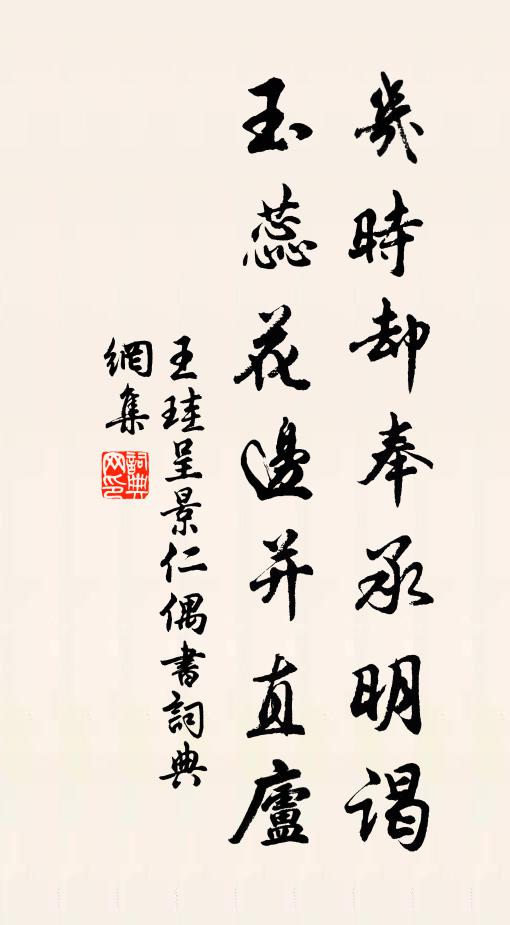 幾時却奉承明謁
玉蕊花邊并直廬
王珪呈景仁偶書詞典
網集
詞典網印